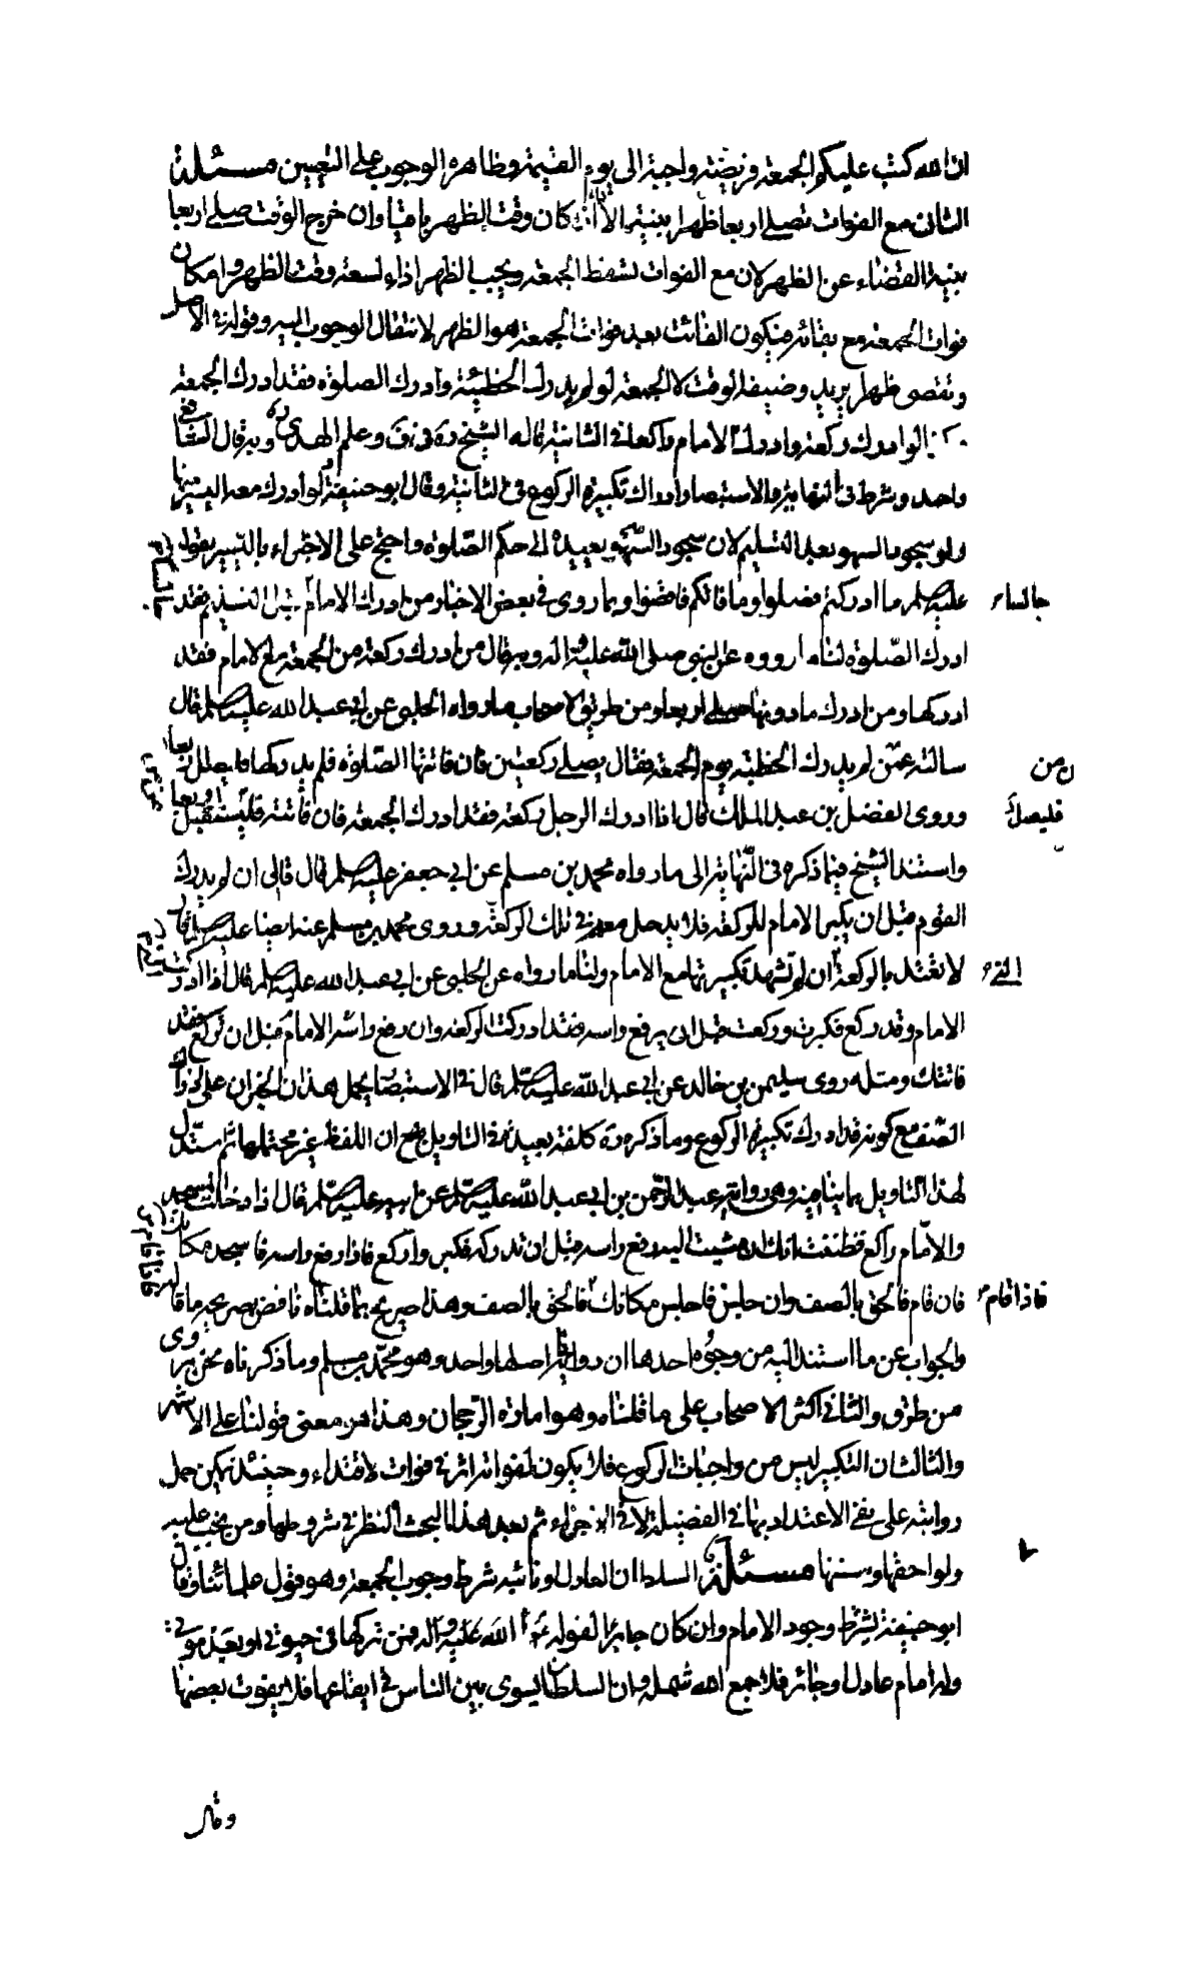 ان الله كتب عليكم الجمعة فريضة واجبة الى يوم القيمة وظاهره الوجوب على التعيين مسئلة
الثانى مع الفوات تصلى اربعا ظهرا بنية الاداء ان كان وقت الظهر باقيا وان خرج الوقت صلى اربعا
بنية القضاء عن الظهر لان مع الفوات تسقط الجمعة ويجب الظهر اداء لسعة وقت الظهر وامكان
فوات الجمعة مع بقائه فيكون الفائت بعد فوات الجمعة هو الظهر لانتقال الوجوب اليه وقوله فى الاصل
وتقضى ظهرا يريد وضيفة الوقت لا الجمعة لو لم يدرك الخطبة وادرك الصلوة فقد ادرك الجمعة
وكذا لو ادرك ركعة وادرك الامام راكعا فى الثانية قاله الشيخ ره فى ف وعلم الهدى ره وبه قال الشافعى
واحمد وشرط فى النهاية والاستبصار ادراك تكبيرة الركوع فى الثانية وقال ابو حنيفة لو ادرك معه اليسير منها
ولو سجود السهو بعد التسليم لان سجود السهو يعيده الى حكم الصلوة واحتج على الاجزاء باليسير بقوله
عليه صلم ما ادركتم فصلوا وما فاتكم فاقضوا وبما روى فى بعض الاخبار من ادرك الامام قبل التسليم فقد
ادرك الصلوة لنا ما رووه عن النبى صلى الله عليه وآله وبه قال من ادرك ركعة من الجمعة مع الامام فقد
ادركها ومن ادرك ما دونها صلى اربعا ومن طريق الاصحاب ما رواه الحلبى عن ابى عبد الله عليه صلم قال
سالته عمن لم يدرك الخطبة يوم الجمعة فقال يصلى ركعتين فان فاتتها الصلوة فلم يدركها فليصل اربعا
وروى الفضل بن عبد الملك قال اذا ادرك الرجل ركعة فقد ادرك الجمعة فان فاتته فليستقبل اربعا
واستند الشيخ فيما ذكره فى النهاية الى ما رواه محمد بن مسلم عن ابى جعفر عليه صلم قال قال لى ان لم يدرك
القوم قبل ان يكبر الامام للركعة فلا يدخل معهم فى تلك الركعة وروى محمد بن مسلم عنه ايضا عليه صلم قال
لا تعتد بالركعة ان لم تشهد تكبيرتها مع الامام ولنا ما رواه عن الحلبى عن ابى عبد الله عليه صلم قال اذا ادركت
الامام وقد ركع فكبرت وركعت قبل ان يرفع راسه فقد ادركت الركعة وان رفع راسه الامام قبل ان تركع فقد
فاتتك ومثله روى سليمن بن خالد عن ابى عبد الله عليه صلم قال فى الاستبصار يحمل هذان الخبران على ادراك
الصف مع كونه قد ادرك تكبيرة الركوع وما ذكره ره كلفة بعيدة فى التاويل مع ان اللفظ غير محتملها ثم استدل
لهذا التاويل بما ينافيه وهى رواية عبد الرحمن بن ابى عبد الله عليه صلم عن ابيه عليه صلم قال اذا دخلت المسجد
والامام راكع فظننت انك ان مشيت اليه رفع راسه قبل ان تدركه فكبر واركع فاذا رفع راسه فاسجد مكانك
فان قام فالحق بالصف وان جلس فاجلس مكانك فالحق بالصف وهذا صريح بما قلناه ناقض بصريحه ما قاله
والجواب عن ما استند اليه من وجوه احدها ان روايته اصلها واحد وهو محمد بن مسلم وما ذكرناه نحن مروى
من طرق والثانى اكثر الاصحاب على ما قلناه وهو امارة الرجحان وهذا هو معنى قولنا على الاشهر
والثالث ان التكبير ليس من واجبات الركوع فلا يكون لفواته اثر فى فوات الاقتداء وحينئذ يمكن حمل
روايته على نفى الاعتداد بها فى الفضيلة لا فى الاجزاء ثم بعد هذا البحث النظر فى شروطها ومن يجب عليه
ولواحقها وسننها مسئلة السلطان العادل او نائبه شرط وجوب الجمعة وهو قول علمائنا وقال
ابو حنيفة يشترط وجود الامام وان كان جائرا لقوله صلى الله عليه وآله فمن تركها فى حيوتى او بعد موتى
وله امام عادل او جائر فلا جمع الله شمله ولان السلطان يسوى بين الناس فى ايقاعها فلا يفوت بعضها
جالسا
ن من
فليصل
فاذا قام
وقال